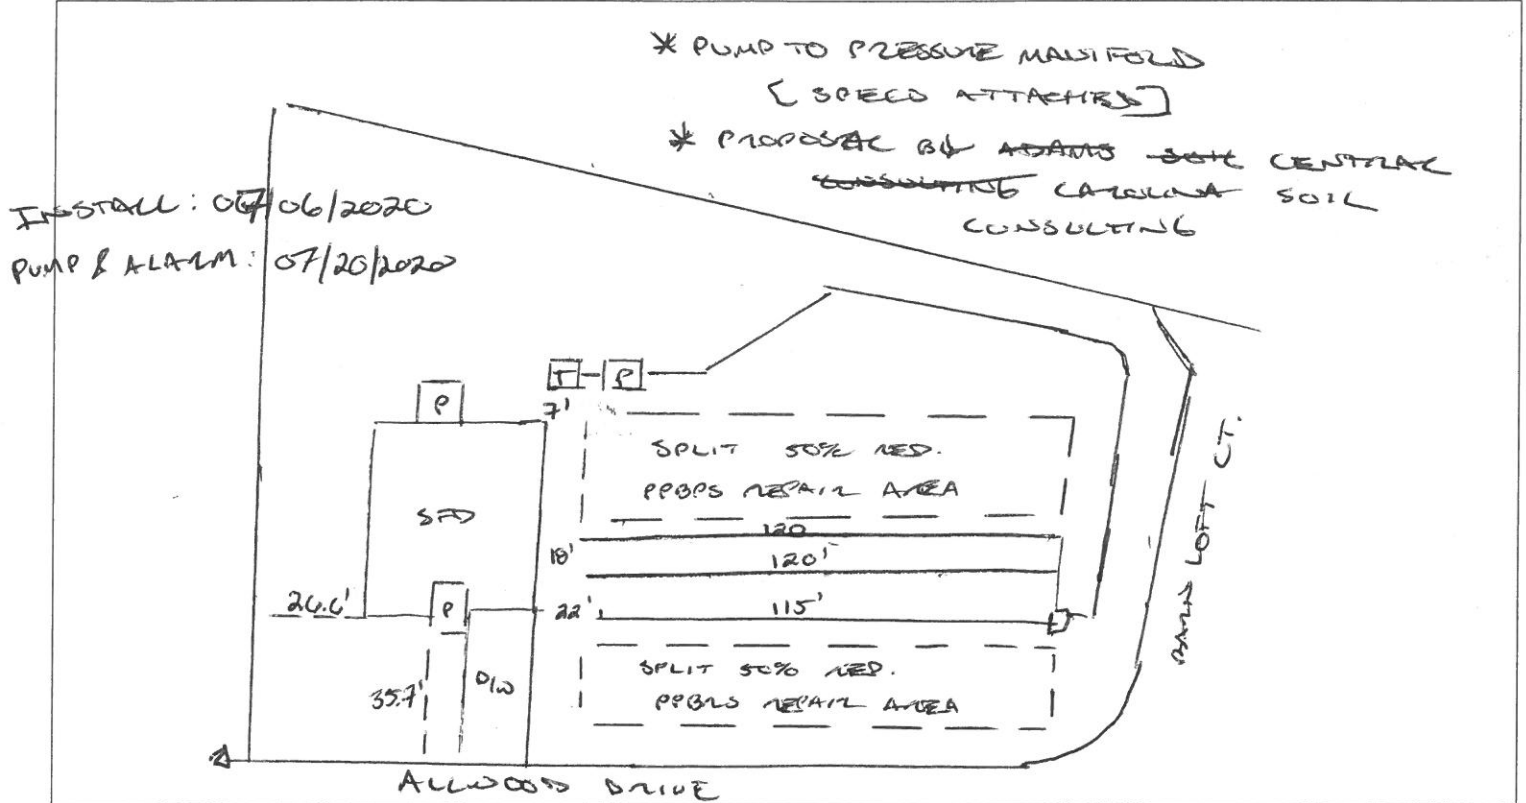 * PUMP TO PRESSURE MANIFOLD
[SPECS ATTACHED]
* PROPOSAL BY ADAMS SOIL CENTRAL
CONSULTING CAROLINA SOIL
CONSULTING
INSTALL: 07/06/2020
PUMP & ALARM: 07/20/2020
T P
P
7'
SPLIT 50% RED.
PPBPS REPAIR AREA
SFD
120
18'
120'
26.6'
P
22'
115'
BARN LOFT CT.
SPLIT 50% RED.
PPBPS REPAIR AREA
35.7'
D/W
ALLWOOD DRIVE